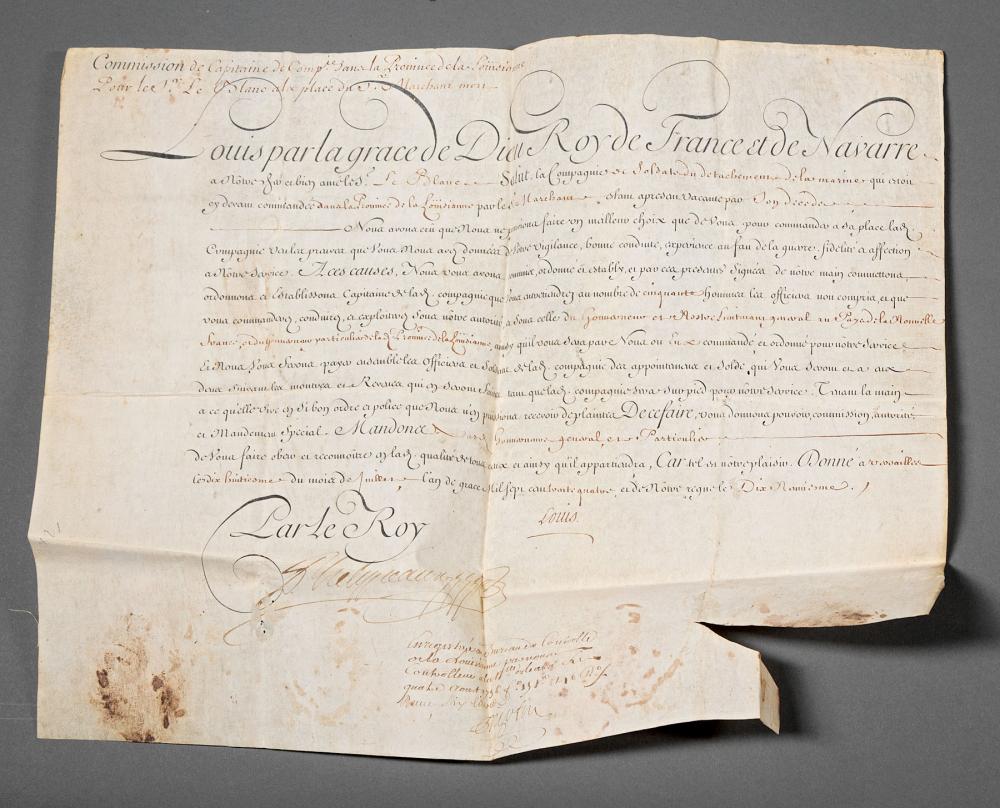 Commission de Capitaine de Comp.ie dans la Province de la Louisiane
Pour le S.r Le Blanc a la place du S.r Marchant mort
Louis par la grace de Dieu Roy de France et de Navarre
a Notre cher et bien amé le S.r Le Blanc Salut. la Compagnie de Soldats du detachement de la marine qui est en
cy devant commandée dans la Province de la Louisianne par le S.r Marchant, estant apresent vacante par Son decede
Nous avons crû que Nous ne pouvions faire un meilleur choix que de Vous, pour commander a Sa place lad.
Compagnie par les preuves que Vous Nous avez données de Votre vigilance, bonne conduite, experience au fait de la guerre, fidelité et affection
a Notre Service. A ces causes, Nous vous avons commis, ordonné et Estably, et par ces presentes Signées de nôtre main commettons,
ordonnons et Establissons Capitaine de lad. compagnie que Vous entretiendrez au nombre de cinquante hommes les officiers non compris, et que
vous commanderez, conduirez, et exploiterez Sous nôtre autorité et Sous celle du Gouverneur et Nostre Lieutenant general au Pays de la Nouvelle
France, et du Gouverneur particulier de lad. Province de la Loüisianne, ainsy qu'il vous Sera par Nous ou Eux commandé et ordonné pour notre Service
Et Nous Vous Ferons payer ensemble les Officiers et Soldats de lad. compagnie des appointemens et Solde, qui Vous Seront et a eux
deus Suivant les montres et Reveües qui en Seront faites tant que lad. compagnie Sera Sur pied pour nôtre Service. Tenant la main
a ce qu'elle vive en Si bon ordre et police que Nous n'en puissions recevoir de plaintes De ce faire, vous donnons pouvoir, commission, autorité
et Mandement Special. Mandons Gouverneurs general et Particulier
de Vous faire obeir et reconnoitre en lad. qualité de tous ceux et ainsy qu'il appartiendra, Car tel est nôtre plaisir. Donné a versailles
le dix huitiesme du mois de Juillet l'an de grace Mil Sept cent trente quatre, et de Nôtre regne le Dix Neuviesme.
Louis
Par le Roy
Phelypeaux
Enregistré au Bureau du Controlle
de la Louisianne
Controlleur